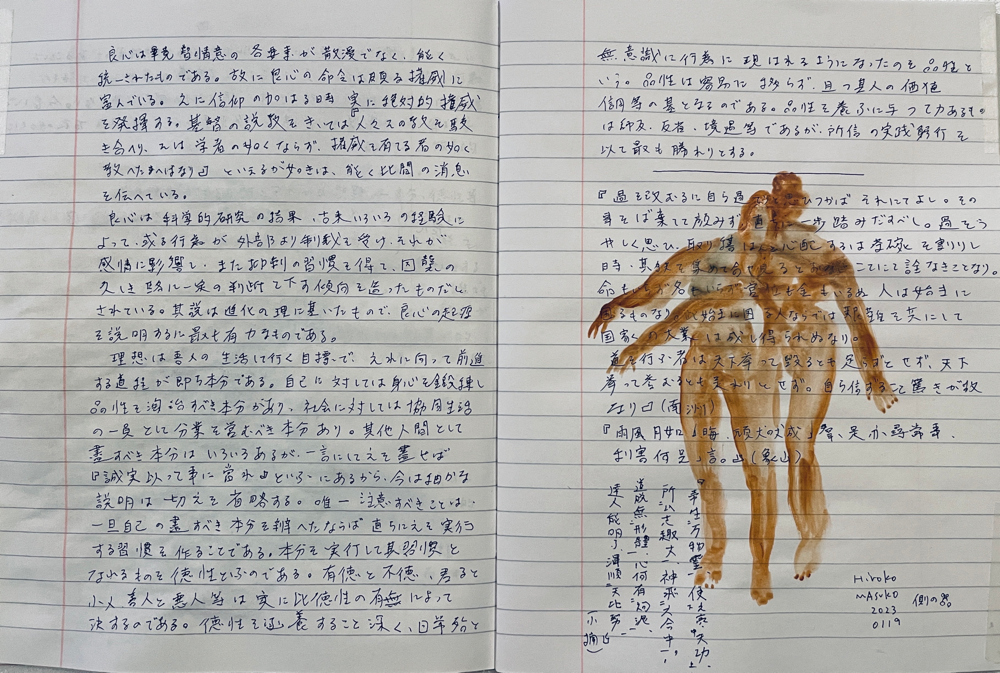 良心は畢竟智情意の各要素が散漫でなく、能く
統一されたものである。故に良心の命令は頗る権威に
富んでいる。之に信仰の加はる時実に絶対的権威
を発揮する。基督の説教をきいては人々その教を駭
き合へり、そは学者の如くならず、権威を有てる者の如く
教へたまへばなり」といえるが如きは、能く此間の消息
を伝へている。
良心は科学的研究の結果、古来いろいろの経験に
よって、或る行為が外部より制裁を受け、それが
感情に影響し、また抑制の習慣を得て、因襲の
久しき終に一定の判断を下す傾向を造ったものだと
されている。其説は進化の理に基いたもので、良心の起原
を説明するに最も有力なものである。
理想は吾人の生活に行く目標で、之れに向って前進
する道程が即ち本分である。自己に対しては身心を鍛錬し
品性を陶冶すべき本分があり、社会に対しては協同生活
の一員として分業を営むべき本分あり。其他人間として
盡すべき本分はいろいろあるが、一言にして之を盡せば
『誠実以って事に當れ』といふにあるから、今は細かな
説明は一切之を省略する。唯一注意すべきことは、
一旦自己の盡すべき本分を辨へたならば直ちに之を実行
する習慣を作ることである。本分を実行して其習慣と
なれるものを徳性と云ふのである。有徳と不徳、君子と
小人、善人と悪人等は実に此徳性の有無によって
決するのである。徳性を涵養すること深く、日常殆と
無意識に行為に現はれるようになったのを品性と
いう。品性は容易に移らず、且つ其人の価値
信用等の基となるのである。品性を養ふに与って力あるもの
は師友、反省、境遇等であるが、所信の実践躬行を
以て最も勝れりとする。
『過を改むるに自ら過つたと思ひつかば それにてよし。その
事をば棄てて顧みず、直に一歩踏みだすべし。過を
やしく思ひ、取り繕はんと心配するは茶碗を割りし
時、其欠を集め合せ見ると ことにて詮なきことなり。
命もいらず名もいらず官位も金もいらぬ人は始末に
困るものなり。始末に困る人ならでは艱難を共にして
国家の大業は成し得られぬなり。
道を行ふ者は天下挙って毀るとも足らずとせず、天下
挙って誉むるとも足れりとせず。自ら信ずること篤きが故
なり』(南洲)
利害何足言。』(象山)
達人能明了、渾順天地勢
道既無形體、心何有拘泥
所以志趣大、神飛六合中
幸生万物霊、使
(小楠)
Hiroko
MASUKO
2023
0119
側の器。